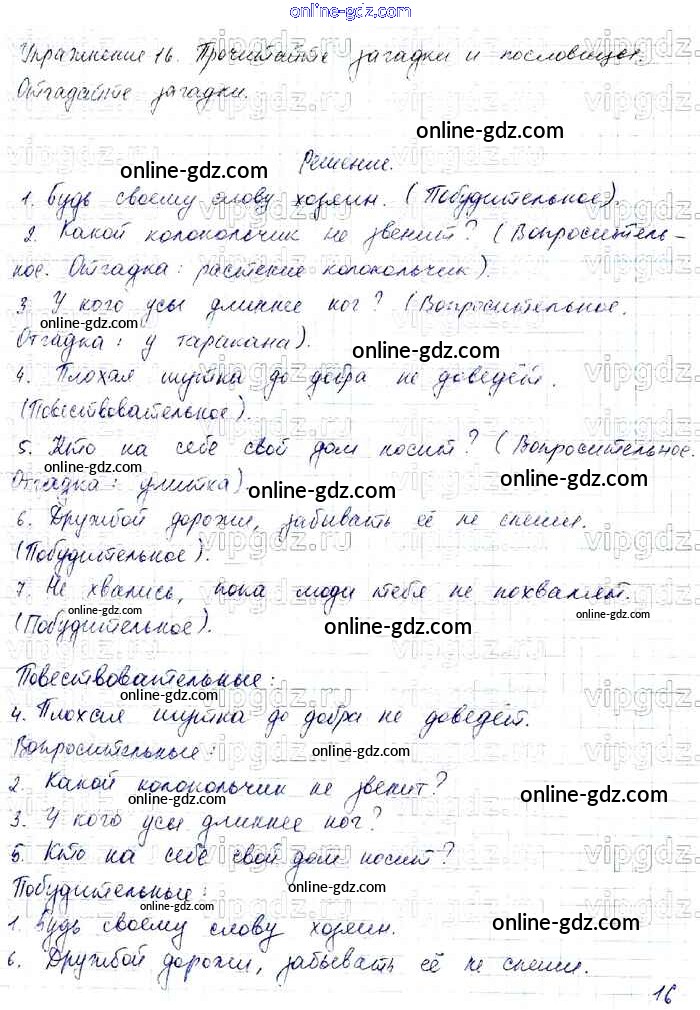 online-gdz.com
Упражнение 16. Прочитайте загадки и пословицы.
Отгадайте загадки.
online-gdz.com
Решение.
online-gdz.com
1. Будь своему слову хозяин. (Побудительное).
2. Какой колокольчик не звенит? (Вопроситель-
ное. Отгадка: растение колокольчик).
3. У кого усы длиннее ног? (Вопросительное.
online-gdz.com
Отгадка: у таракана).
online-gdz.com
4. Плохая шутка до добра не доведёт.
(Повествовательное).
online-gdz.com
5. Кто на себе свой дом носит? (Вопросительное.
online-gdz.com
Отгадка: улитка).
online-gdz.com
6. Дружбой дорожи, забывать её не спеши.
(Побудительное).
online-gdz.com
7. Не хвались, пока люди тебя не похвалят.
online-gdz.com
(Побудительное).
online-gdz.com
online-gdz.com
Повествовательные:
online-gdz.com
4. Плохая шутка до добра не доведёт.
Вопросительные:
online-gdz.com
2. Какой колокольчик не звенит?
online-gdz.com
online-gdz.com
3. У кого усы длиннее ног?
online-gdz.com
5. Кто на себе свой дом носит?
Побудительные:
online-gdz.com
online-gdz.com
1. Будь своему слову хозяин.
online-gdz.com
6. Дружбой дорожи, забывать её не спеши.
16